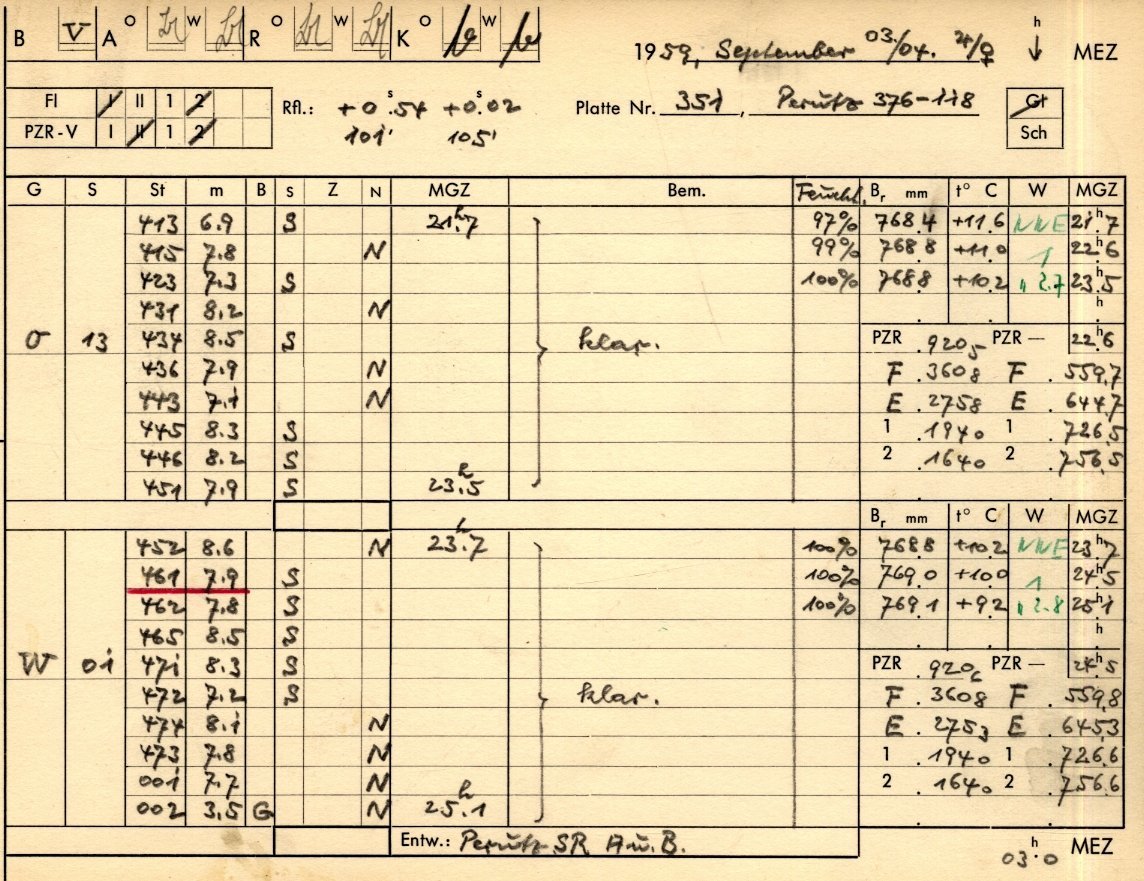 B V A O W R O W K O W 1959, September 03./04. ♃/♀ h ↓ MEZ
FI I II 1 2 Rfl.: +0ˢ.54 +0ˢ.02 Platte Nr. 351, Perutz 376-118 Gl
PZR-V I II 1 2 101' 105' Sch
G S St m B S Z N MGZ Bem. Feucht. Bᵣ mm t° C W MGZ
413 6.9 S 21ʰ.7 97% 768.4 +11.6 NNE 21ʰ.7
415 7.8 N 99% 768.8 +11.0 1 22ʰ.6
423 7.3 S 100% 768.8 +10.2 " 2.7 23ʰ.5
431 8.2 N h
O 13 434 8.5 S klar. PZR .920₅ PZR — 22ʰ.6
436 7.9 N F .3608 F .559,7
443 7.1 N E .2758 E .644,7
445 8.3 S 1 .1940 1 .726,5
446 8.2 S 2 .1640 2 .756,5
451 7.9 S 23ʰ.5
Bᵣ mm t° C W MGZ
452 8.6 N 23ʰ.7 100% 768.8 +10.2 NNE 23ʰ.7
461 7.9 S 100% 769.0 +10.0 1 24ʰ.5
462 7.8 S 100% 769.1 +9.2 " 2.8 25ʰ.1
465 8.5 S h
W 01 471 8.3 S PZR .920₆ PZR — 24ʰ.5
472 7.2 S klar. F .3608 F .559,8
474 8.1 N E .2753 E .645,3
473 7.8 N 1 .1940 1 .726,6
001 7.7 N 2 .1640 2 .756,6
002 3.5 G N 25ʰ.1
Entw.: Perutz-SR A u. B. 03ʰ.0 MEZ